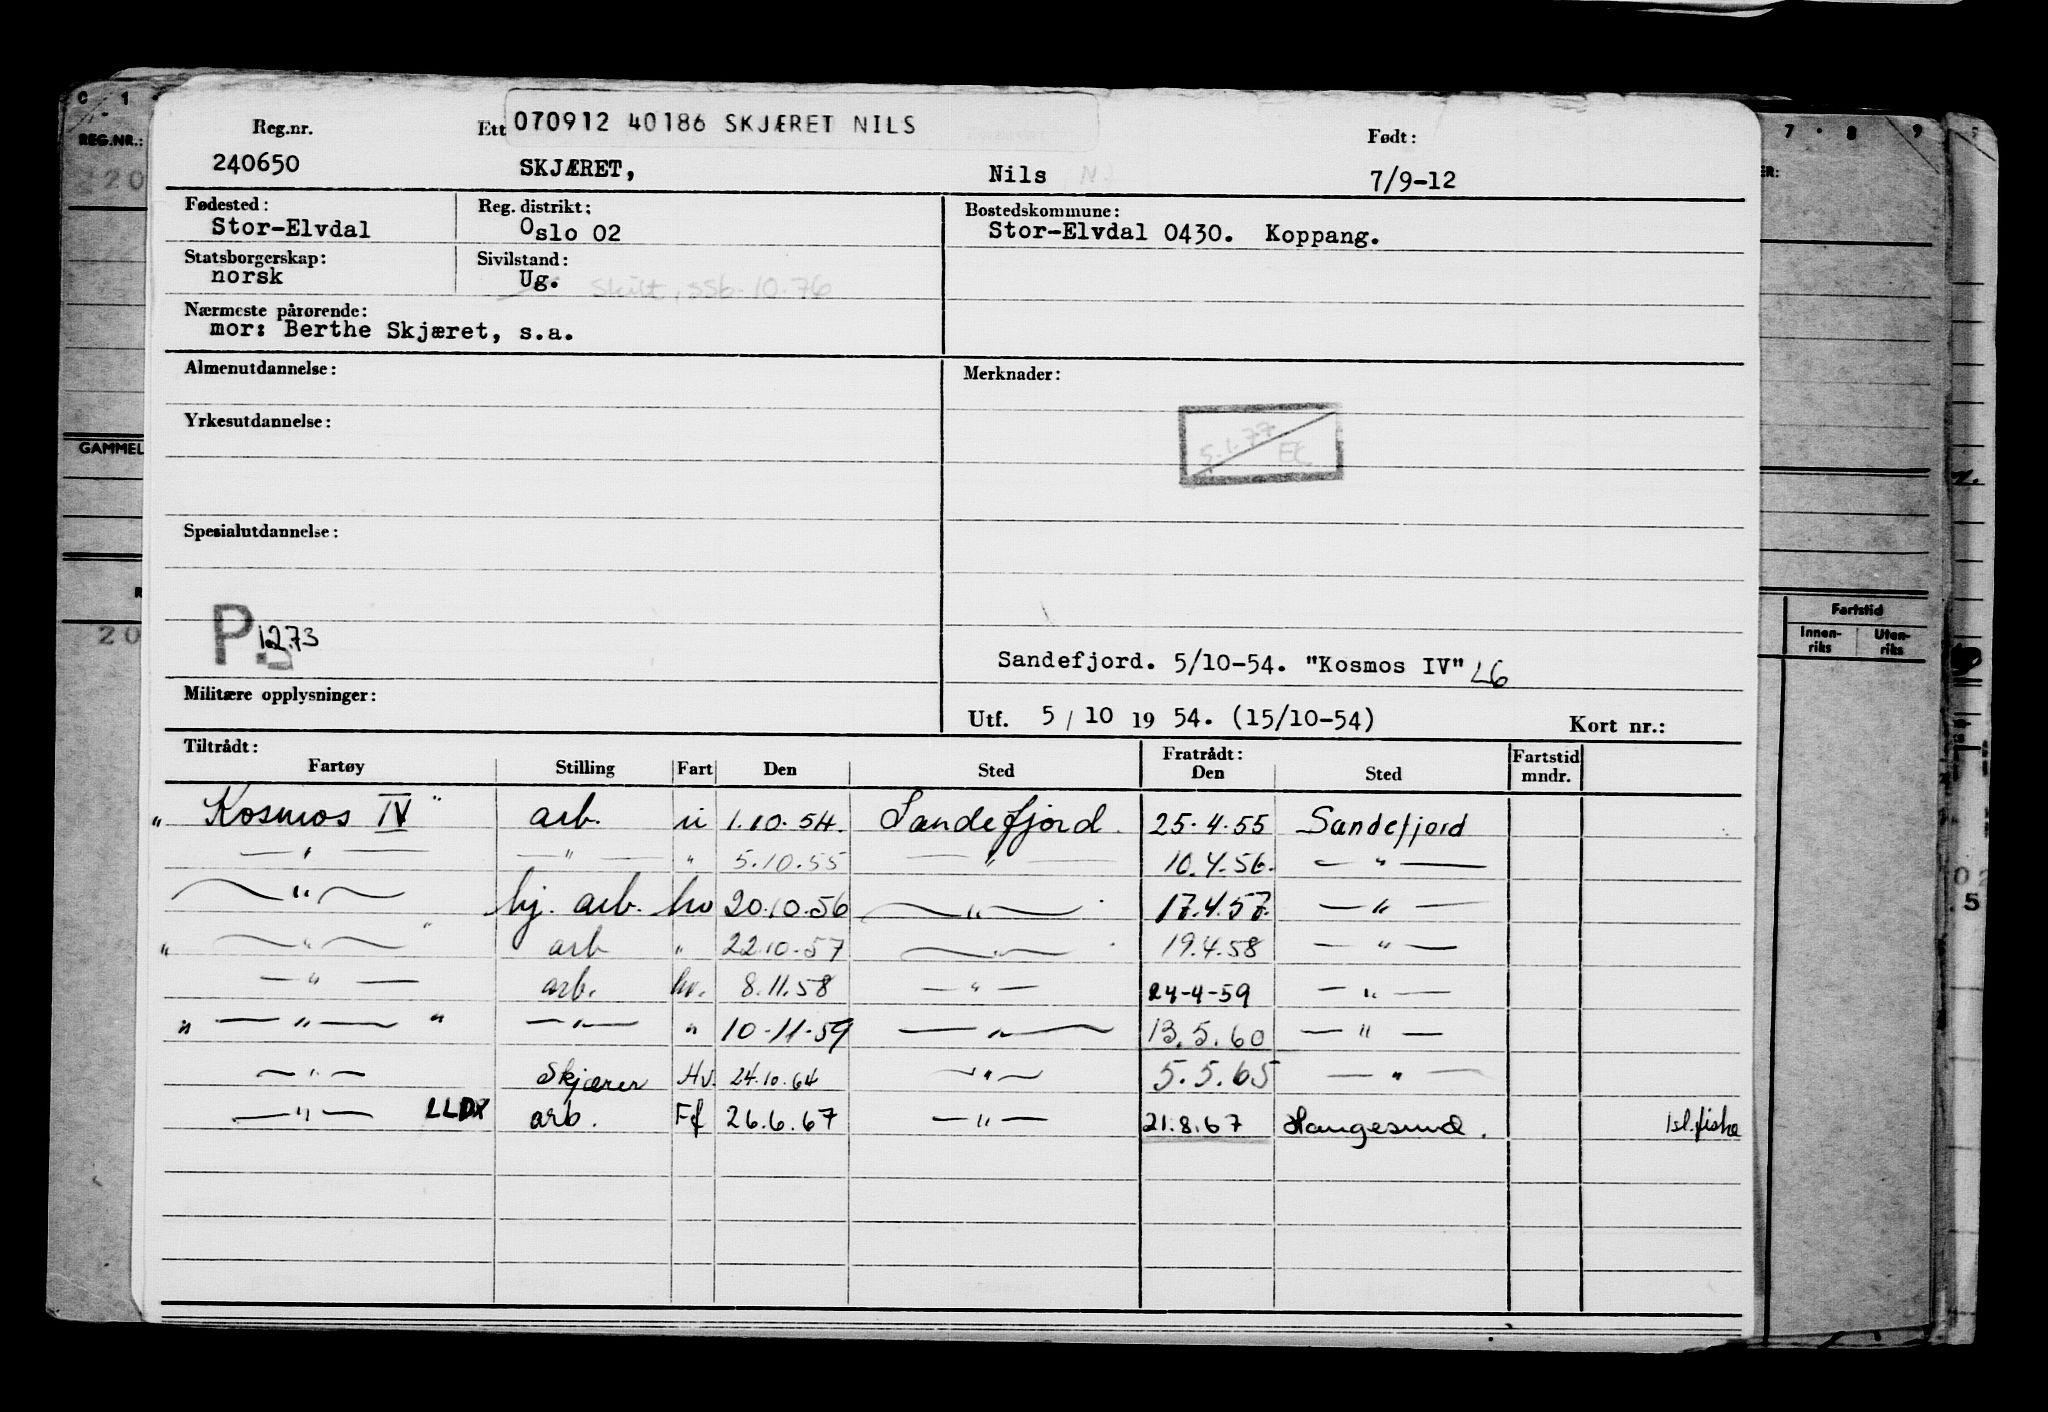 070912 40186 SKJÆRET NILS
Reg.nr. Ett Født:
240650 SKJÆRET, Nils N. 7/9-12
Fødested: Reg. distrikt: Bostedskommune:
Stor-Elvdal Oslo 02 Stor-Elvdal 0430. Koppang.
Statsborgerskap: Sivilstand:
norsk Ug. Skilt, SSB. 10.76
Nærmeste pårørende:
mor: Berthe Skjæret, s.a.
Almenutdannelse: Merknader:
Yrkesutdannelse:
5.1.77 EC
Spesialutdannelse:
P.5 12.73
Sandefjord. 5/10-54. "Kosmos IV" L6
Militære opplysninger:
Utf. 5/10 19 54. (15/10-54) Kort nr.:
Tiltrådt: Fratrådt:
Fartøy Stilling Fart Den Sted Den Sted Fartstid mndr.
"Kosmos IV" arb. u 1.10.54. Sandefjord. 25.4.55 Sandefjord
— " — — " — " 5.10.55 — " — 10.4.56. — " —
— " — hj. arb. hv 20.10.56 — " — 17.4.57. — " —
" — " — " arb " 22.10.57 — " — 19.4.58 — " —
— " — arb. hv. 8.11.58 — " — 24-4-59 — " —
" — " — " — " — " 10-11-59 — " — 13.5.60 — " —
— " — Skjærer Hv. 24.10.64 — " — 5.5.65 — " —
— " — LLDX arb. Ff 26.6.67 — " — 21.8.67 Haugesund. Isl.fiske
C 1
REG.NR.:
220
GAMMEL
R
20
7 8 9
ER:
Fartstid
Innen-riks Uten-riks
02
5